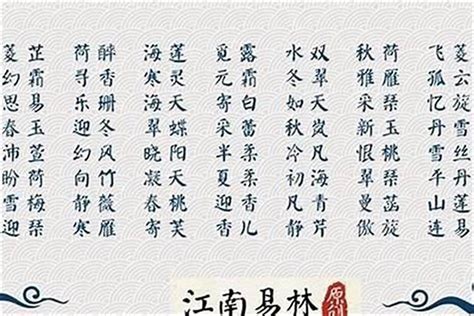 菱芷 荷醉 海莲 觅露 水双 秋荷 飞菱
幻霜 寻香 寒灵 元霜 冬翠 雅雁 孤云
思易 乐珊 海天 寄白 如天 采琴 忆旋
春玉 迎冬 翠蝶 采蕾 秋岚 新玉 丹雪
沛萱 幻风 晓阳 半柔 初凡 恨桃 雪丝
盼荷 向竹 凝天 夏柔 海 翠琴 丹
雪梅 静薇 春桃 迎香 凡 曼菡 山莲
迎琴 寒雁 寄芙 香儿 静 傲旋 连易
江南易林
原创